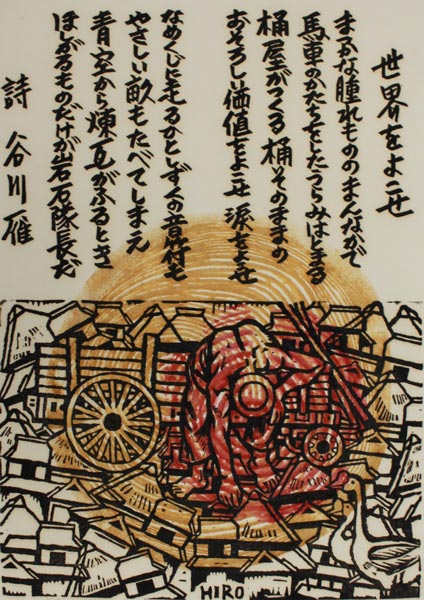 世界をよこせ
まるかな腫れもののまんなかで
馬車のかたちをしたうらみはとまる
桶屋がつくる桶そのままの
おそろしい価値をよこせ 涙をよこせ
なめくじに走るひとしずくの音符も
やさしい畝もたべてしまえ
青空から煉瓦がふるとき
ほしがるものだけが岩石隊長だ
詩 谷川雁
HIRO